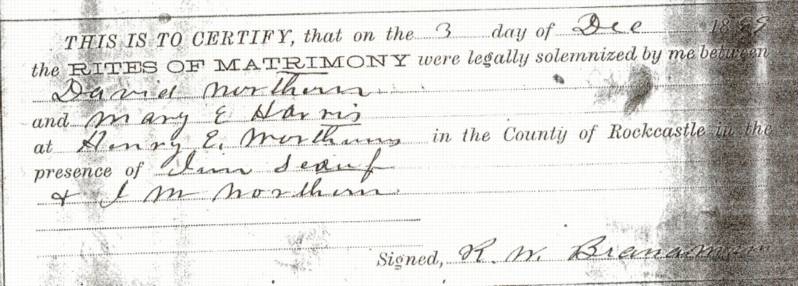 THIS IS TO CERTIFY, that on the 3 day of Dec 1889
the RITES OF MATRIMONY were legally solemnized by me between
David Northern
and Mary E Harris
at Henry E. Northerns in the County of Rockcastle in the
presence of Jim
& J M Northern
Signed, R. W.